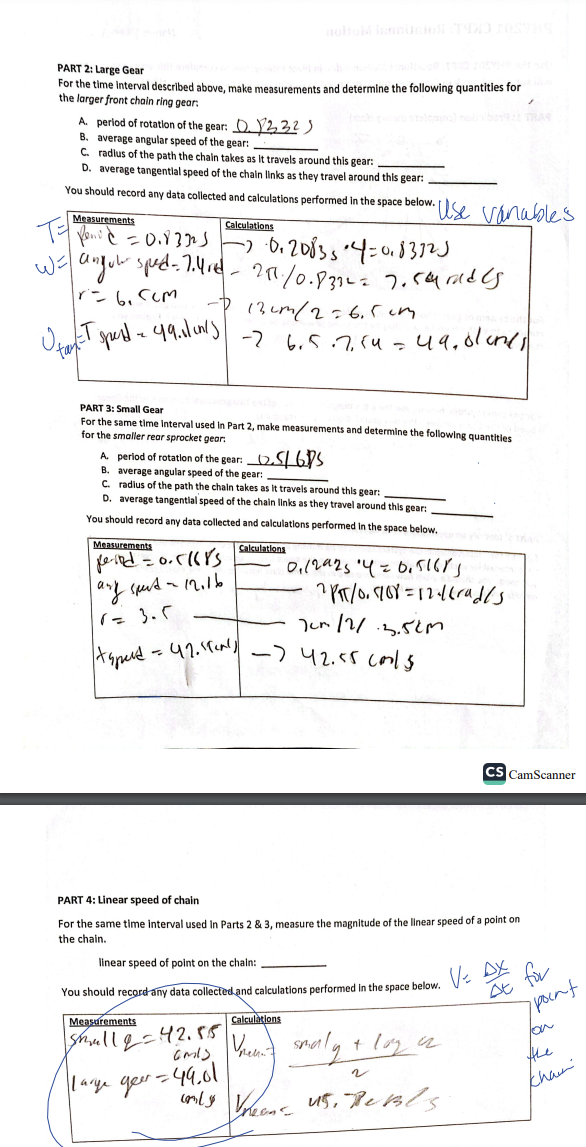 PART 2: Large Gear
For the time interval described above, make measurements and determine the following quantities for
the larger front chain ring gear:
A. period of rotation of the gear: 0.8332 s
B. average angular speed of the gear:
C. radius of the path the chain takes as it travels around this gear:
D. average tangential speed of the chain links as they travel around this gear:
You should record any data collected and calculations performed in the space below.
Use variables
Measurements
Calculations
T=
period = 0.8332s
→ 0.2083s · 4 = 0.8332s
ω=
angular speed = 7.4 rad
- 2π/0.8332 = 7.54 rad/s
r = 6.5cm
→ 13 cm/2 = 6.5 cm
Vtan=
T speed = 49.01cm/s
→ 6.5 · 7.54 = 49.01 cm/s
PART 3: Small Gear
For the same time interval used in Part 2, make measurements and determine the following quantities
for the smaller rear sprocket gear:
A. period of rotation of the gear: 0.5168s
B. average angular speed of the gear:
C. radius of the path the chain takes as it travels around this gear:
D. average tangential speed of the chain links as they travel around this gear:
You should record any data collected and calculations performed in the space below.
Measurements
Calculations
period = 0.5168s
0.1292s · 4 = 0.5168s
ang speed = 12.16
2π/0.5168 = 12.16rad/s
r = 3.5
7cm /2/ 3.5cm
t speed = 42.55cm/s
→ 42.55 cm/s
CS CamScanner
PART 4: Linear speed of chain
For the same time interval used in Parts 2 & 3, measure the magnitude of the linear speed of a point on
the chain.
linear speed of point on the chain:
You should record any data collected and calculations performed in the space below.
V= Δx/Δt for
point
on
the
chain
Measurements
Calculations
small g = 42.55
cm/s
Vmean=
small g +
2
large gear = 49.01
cm/s
Vmean= 45.78